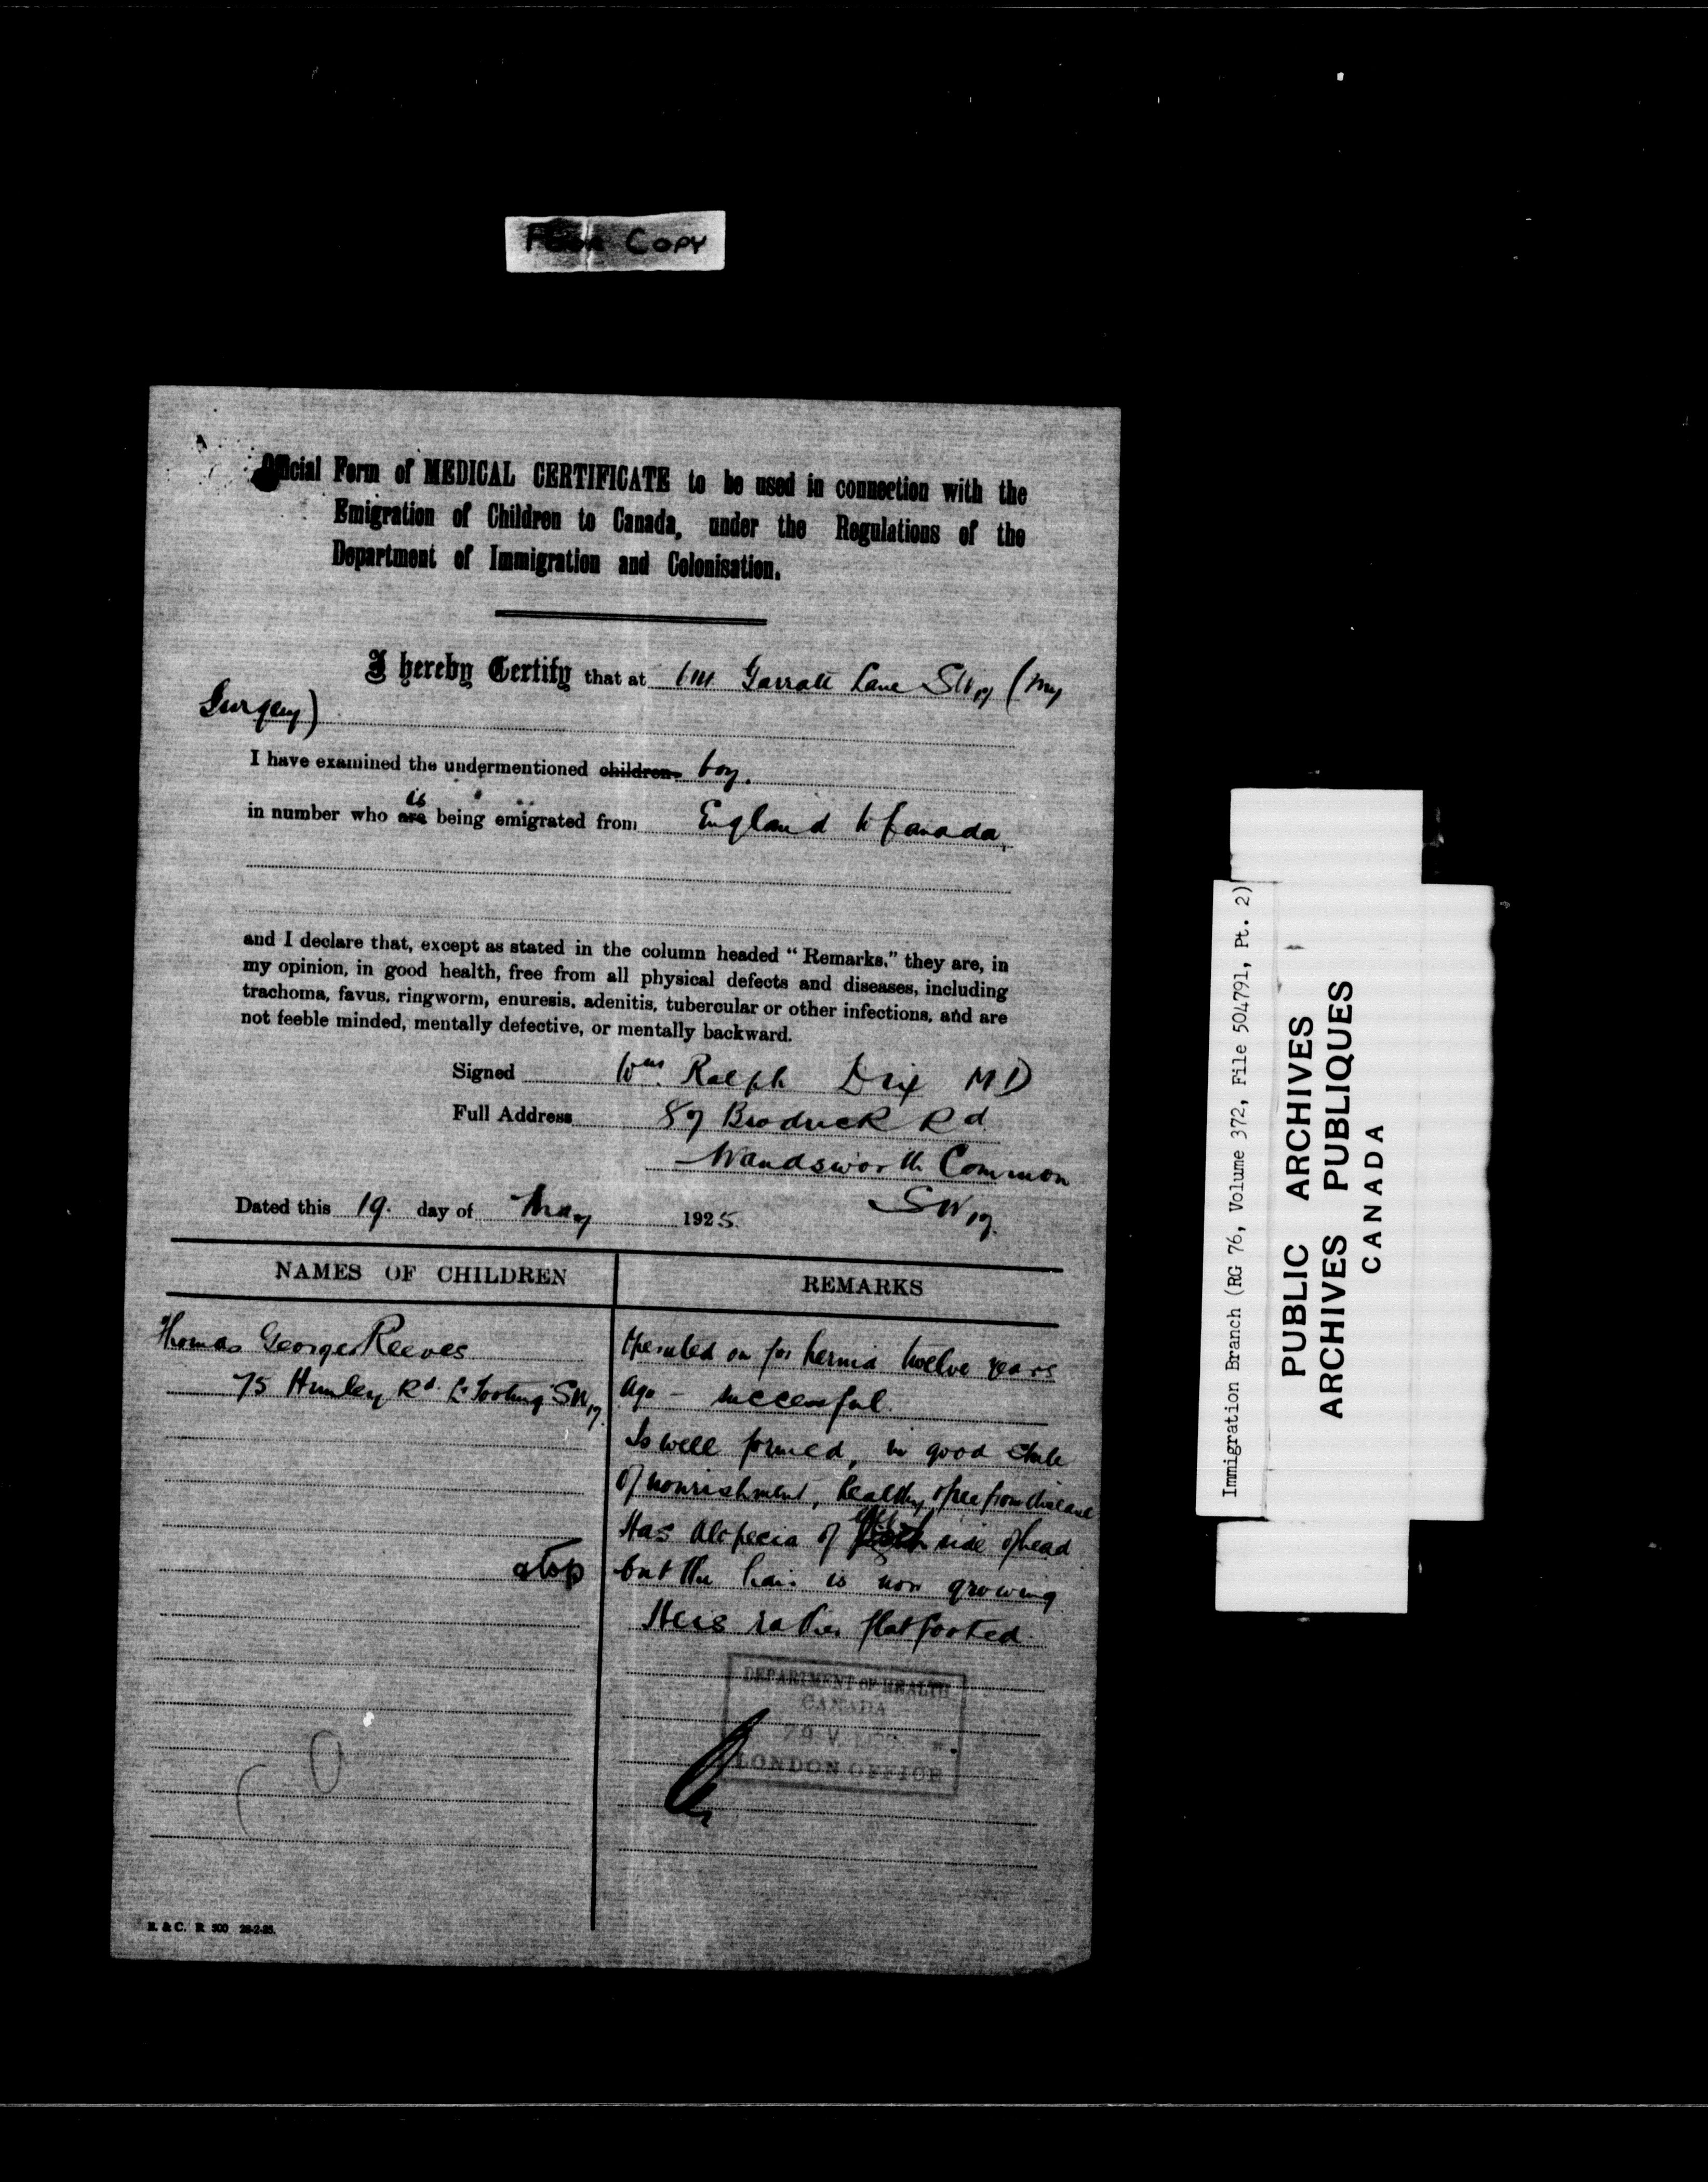 Poor Copy
Official Form of MEDICAL CERTIFICATE to be used in connection with the
Emigration of Children to Canada, under the Regulations of the
Department of Immigration and Colonisation.
I hereby Certify that at Garratt Lane SW17 (My
Surgery)
I have examined the undermentioned children boy.
in number who are is being emigrated from England to Canada,
and I declare that, except as stated in the column headed “ Remarks,” they are, in
my opinion, in good health, free from all physical defects and diseases, including
trachoma, favus, ringworm, enuresis, adenitis, tubercular or other infections, and are
not feeble minded, mentally defective, or mentally backward.
Signed Wm. Ralph Dix MD
Full Address 89 Brodrick Rd
Wandsworth Common
SW17.
Dated this 19. day of May 1925.
NAMES OF CHILDREN
REMARKS
Thomas George Reeves
75 Rd. Tooting SW17.
stop
Operated on for hernia twelve years
ago - successful.
Is well formed, in good state
of nourishment, healthy & free from disease
Has Alopecia of side of head
but the hair is now growing
He is rather flatfooted.
DEPARTMENT OF HEALTH
CANADA
29 V
LONDON OFFICE
E. & C. R 500 28-2-25.
Immigration Branch (RG 76, Volume 372, File 504791, Pt. 2)
PUBLIC ARCHIVES
ARCHIVES PUBLIQUES
CANADA